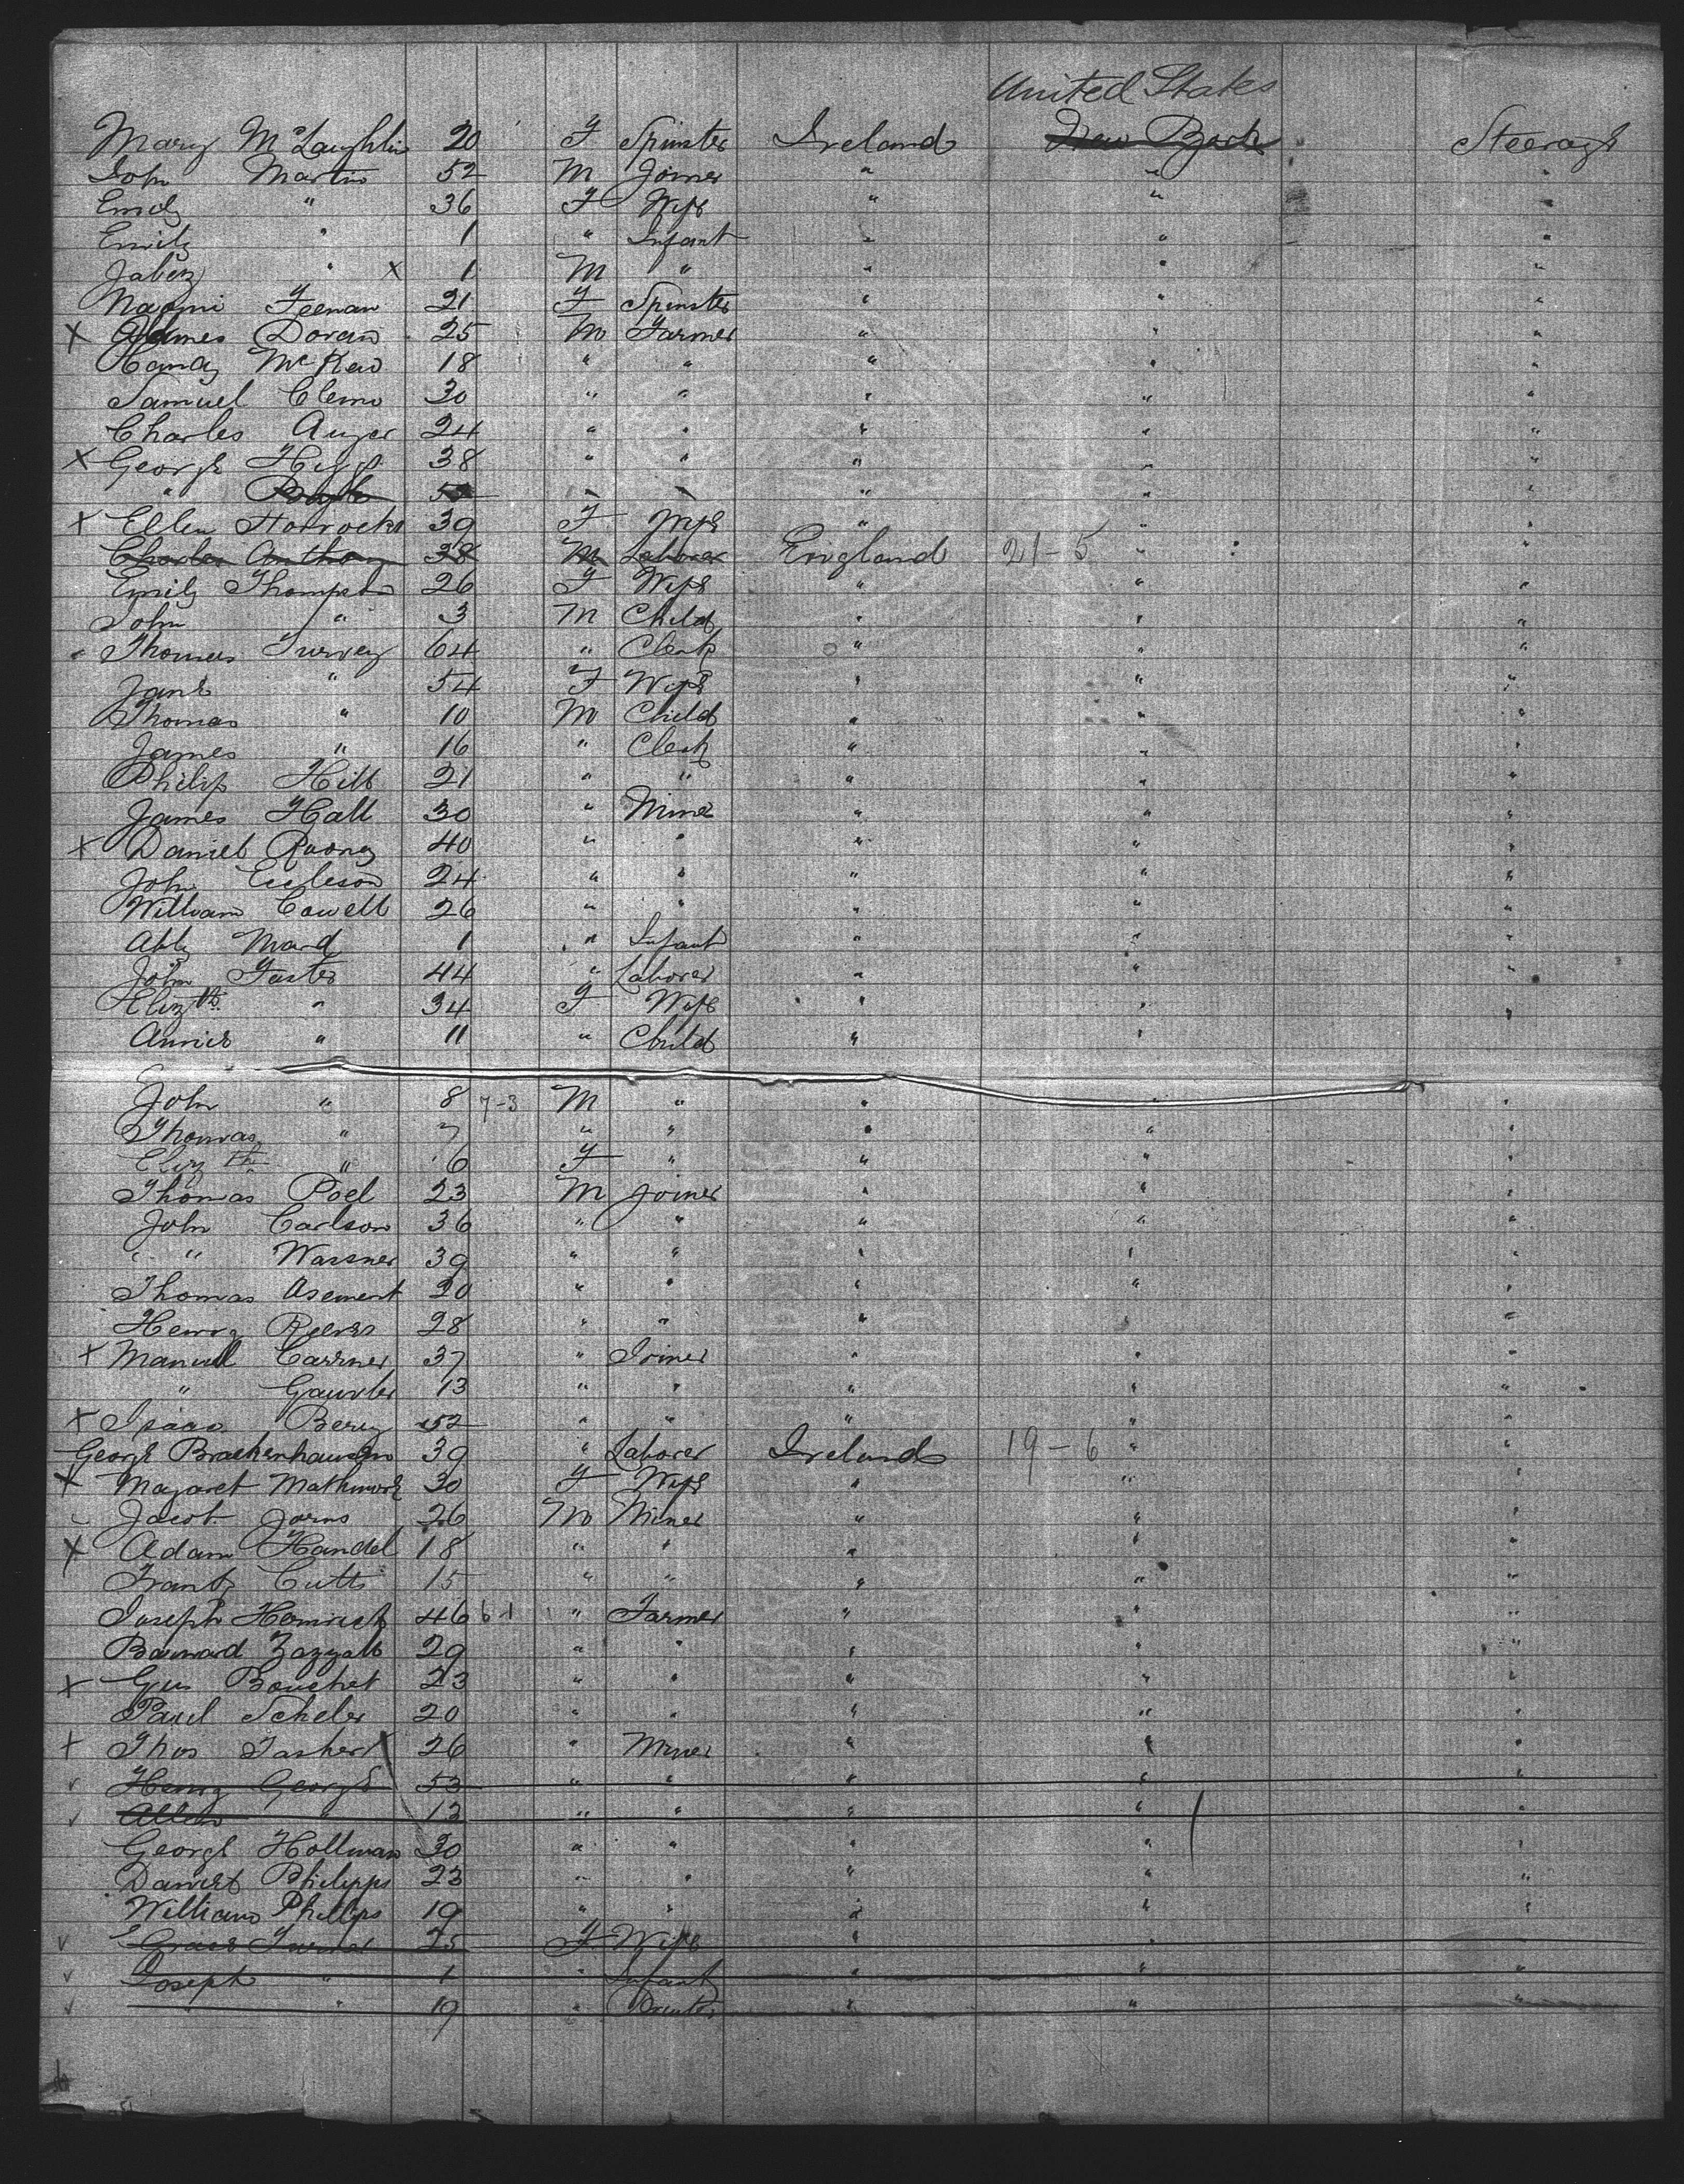 United States
Mary McLaughlin 20 F Spinster Ireland New York Steerage
John Martin 52 M Joiner " " "
Emily " 36 F Wife " " "
Emily " 1 " Infant " " "
Jabez " x 1 M " " " "
Naomi Feenan 21 F Spinster " " "
X James Doran 25 M Farmer " " "
McKew 18 " " " " "
Samuel Clemo 30 " " " " "
Charles Auger 24 " " " " "
X George 38 " " " " "
" " " " " "
X Ellen Horrocks 39 F Wife " " "
Charles Anthony 38 M Laborer England 21-5 " "
Emily Thompson 26 F Wife " " "
John " 3 M Child " " "
Thomas Turvey 64 " Clerk " " "
Jane " 54 F Wife " " "
Thomas " 10 M Child " " "
James " 16 " Clerk " " "
Philip Hill 21 " " " " "
James Hall 30 " Miner " " "
X Daniel Rooney 40 " " " " "
John Eccleson 24 " " " " "
William Cowell 26 " " " " "
Ward 1 " Infant " " "
John Foster 44 " Laborer " " "
Elizth " 34 F Wife " " "
Annie " 11 " Child " " "
John " 8 7-3 M " " " "
Thomas " 7 " " " " "
Elizth " 6 F " " " "
Thomas Poel 23 M Joiner " " "
John Carlson 36 " " " " "
" Wassner 39 " " " " "
Thomas Asement 20 " " " " "
Henry Reeves 28 " " " " "
X Manuel 37 " Joiner " " "
" 13 " " " " "
X Isaac Berry 52 " " " " "
George Brackenhausen 39 " Laborer Ireland 19-6 " "
X Magaret 30 F Wife " " "
Jacob Jorns 26 M Miner " " "
X Adam Handel 18 " " " " "
Frantz Cutts 15 " " " " "
Joseph Heinrich 46 6-1 " Farmer " " "
29 " " " " "
X Gus Bouchet 23 " " " " "
Paul Scheler 20 " " " " "
X Thos 26 " Miner " " "
Henry George 53 " " " " "
" 13 " " " " "
George Hollman 30 " " " " "
Daniel Philipps 23 " " " " "
William Phillips 19 " " " " "
Grace Turner 25 F Wife " " "
Joseph " 1 " Infant " " "
" 19 " " " "